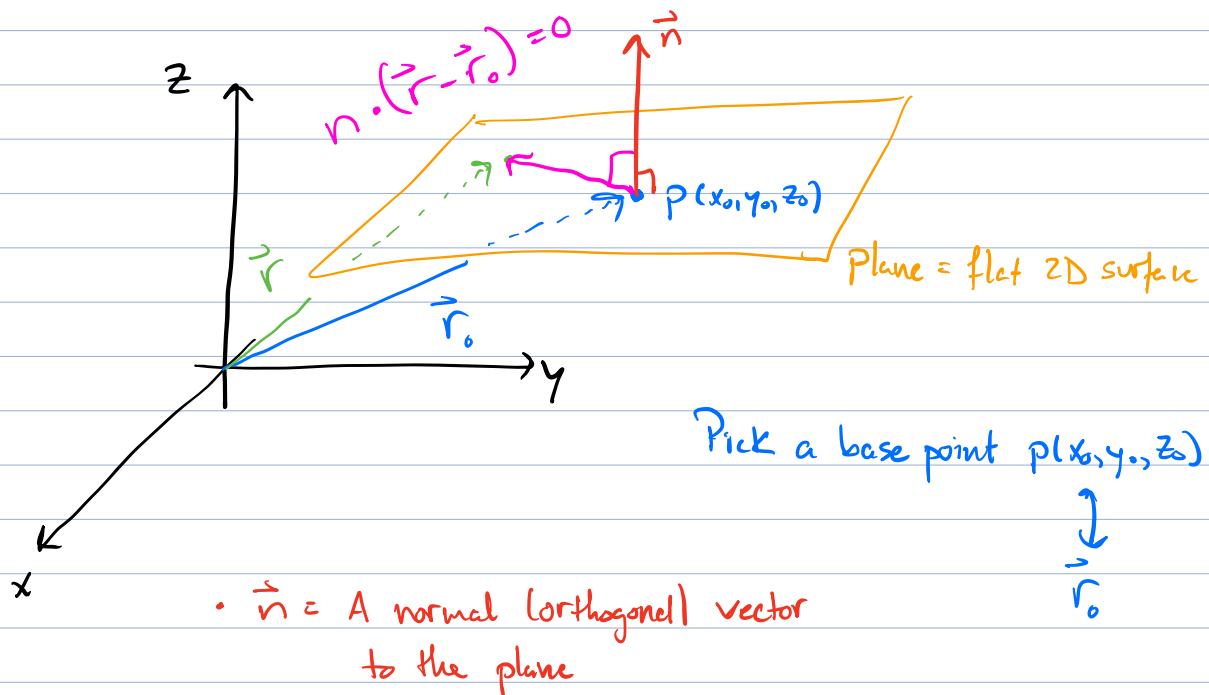 n⃗
n · (r⃗ - r⃗₀) = 0
z
p(x₀,y₀,z₀)
r⃗
Plane = flat 2D surface
r⃗₀
y
Pick a base point p(x₀,y₀,z₀)
r⃗₀
x
• n⃗ = A normal (orthogonal) vector
to the plane